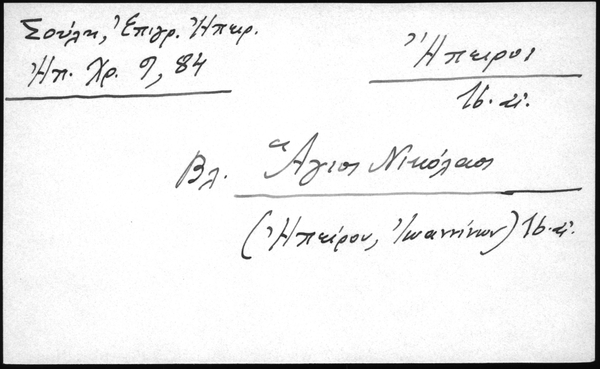 Σούλη, Ἐπιγρ. Ἠπειρ.
Ἠπ. Χρ. 9, 84
Ἤπειροι
16. αἰ.
Βλ. Ἅγιος Νικόλαος
(Ἠπείρου, Ἰωαννίνων) 16. αἰ.